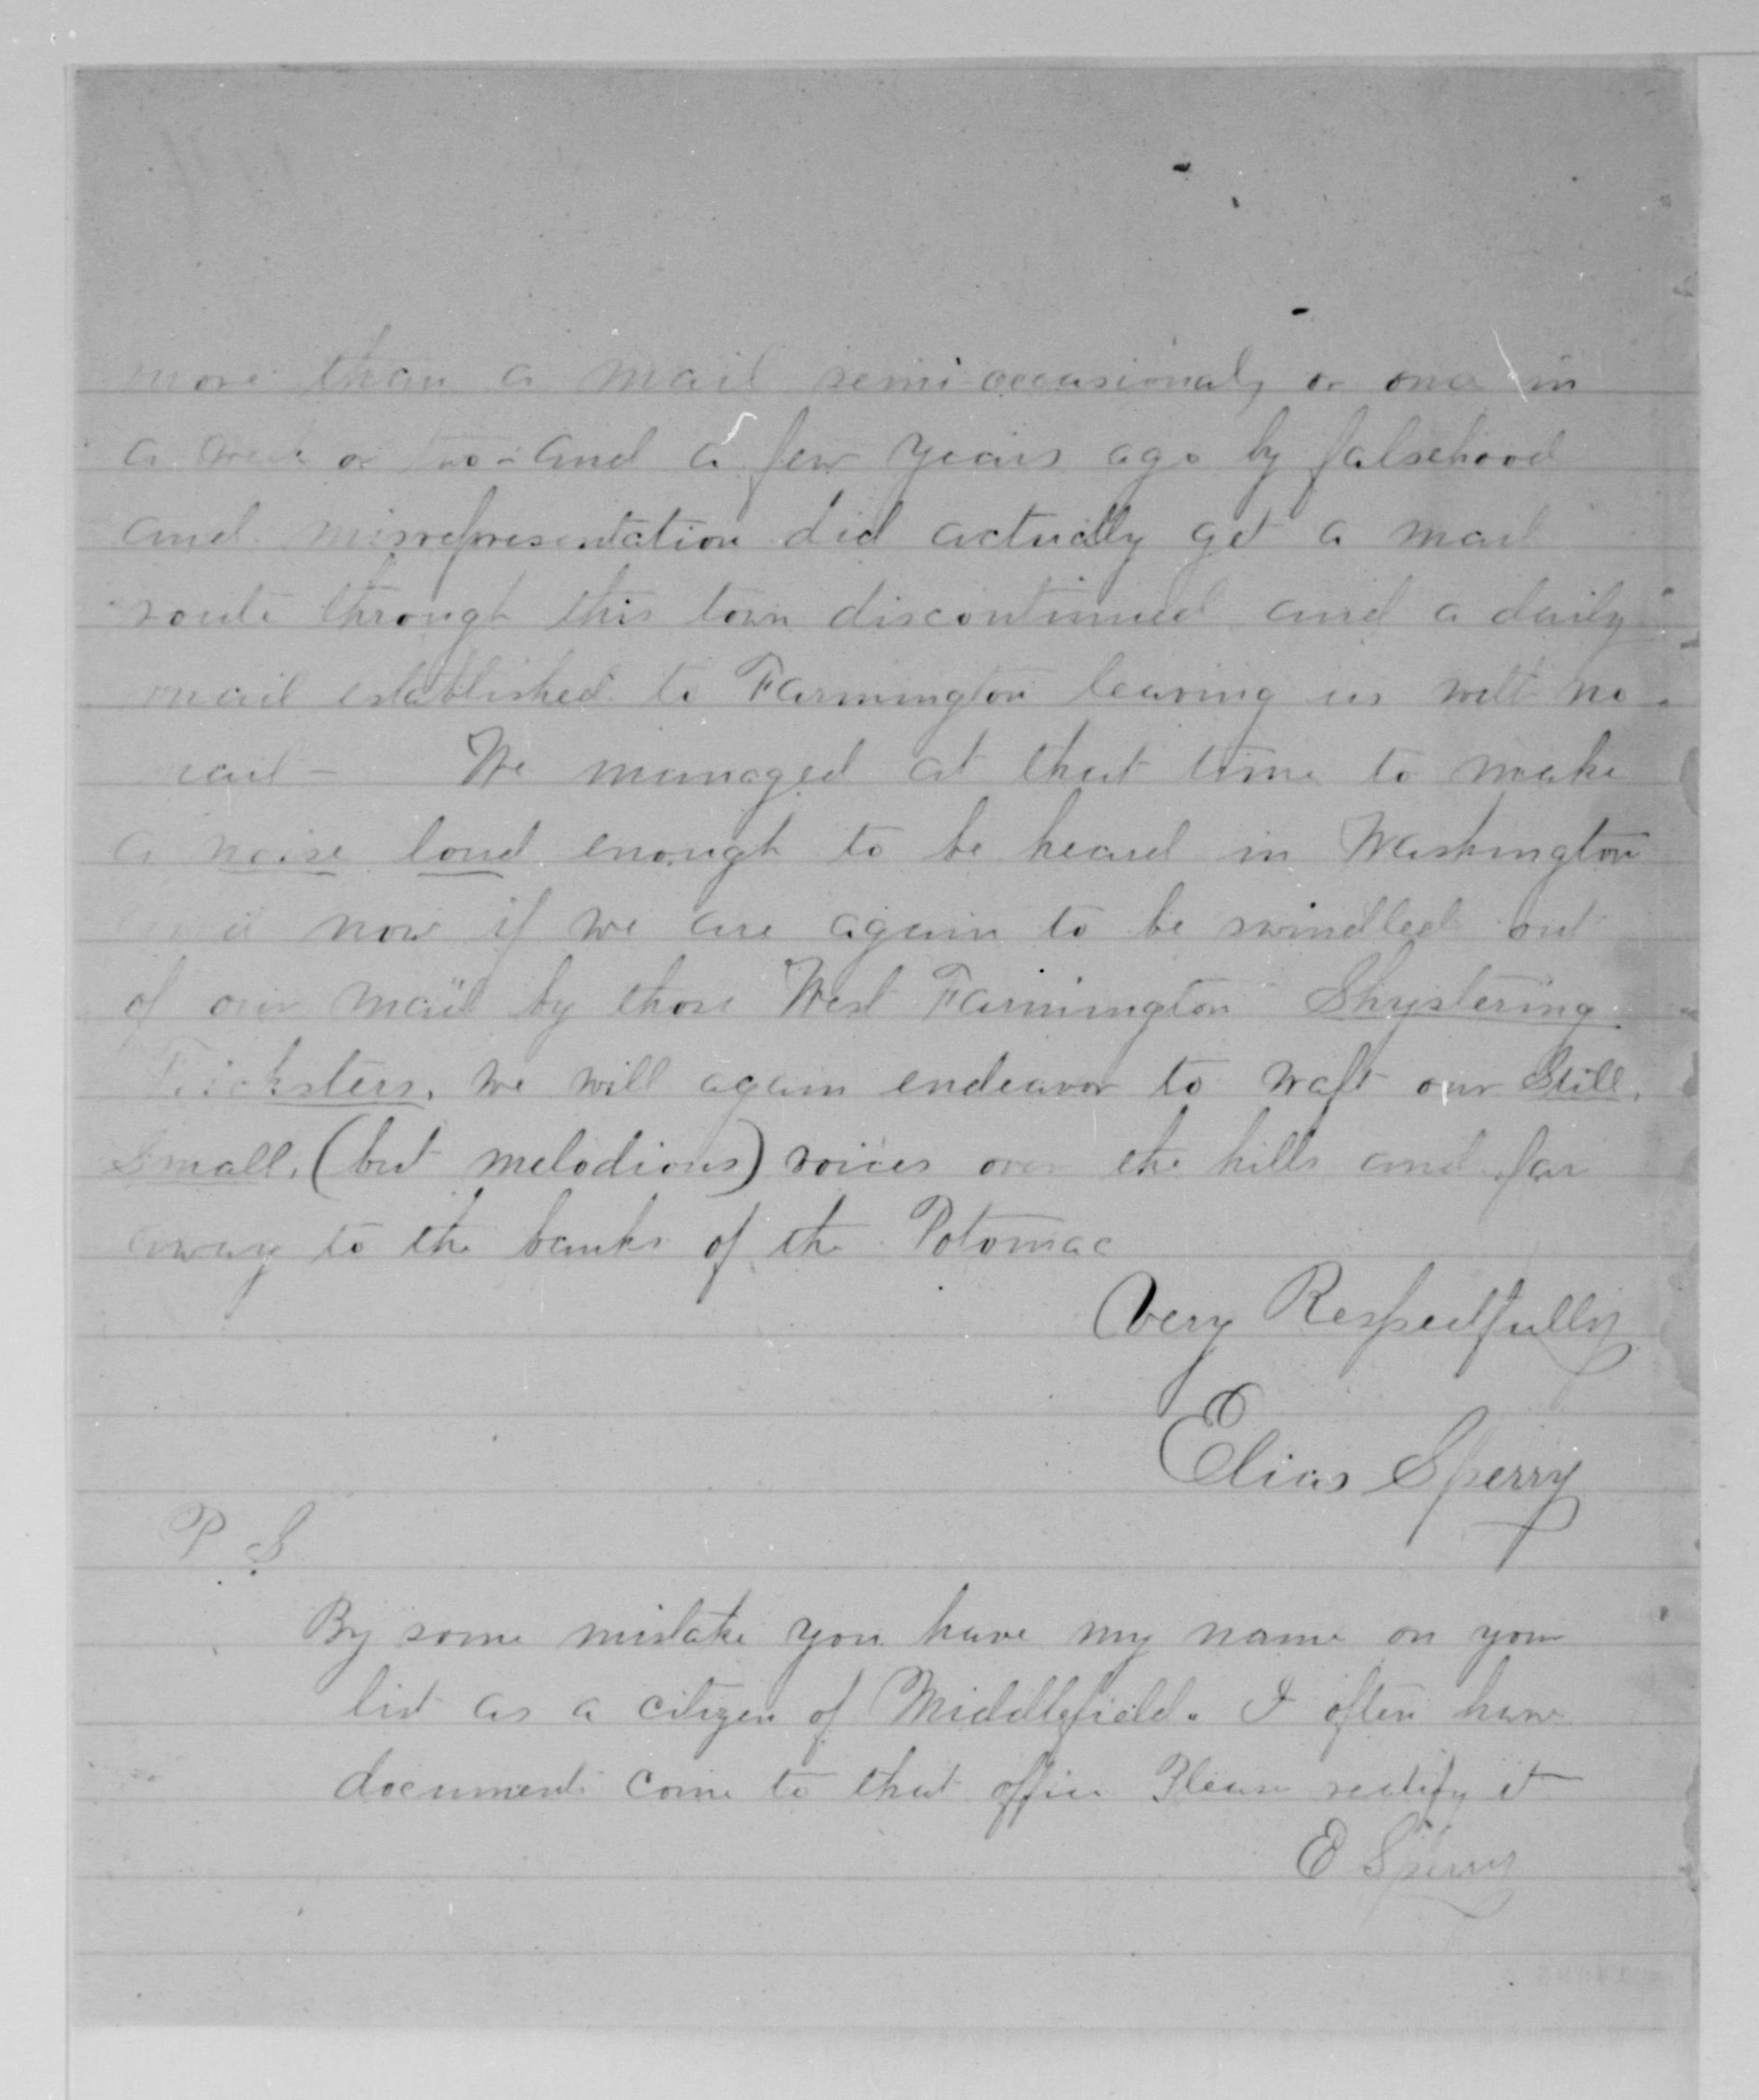 more than a mail semi occasionaly or once in
a week or two - and a few years ago by falsehood
and misrepresentation did actually get a mail
route through this town discontinued and a daily
mail established to Farmington leaving us with no
mail - We managed at that time to make
a noise loud enough to be heard in Washington
and now if we are again to be swindled out
of our mail by those West Farmington Shystering
Tricksters, we will again endeavor to waft our Still,
Small, (but melodious) voices over the hills and far
away to the banks of the Potomac
Very Respectfully
Elias Sperry
P S
By some mistake you have my name on your
list as a citizen of Middlefield. I often have
documents come to that office Please rectify it
E Sperry